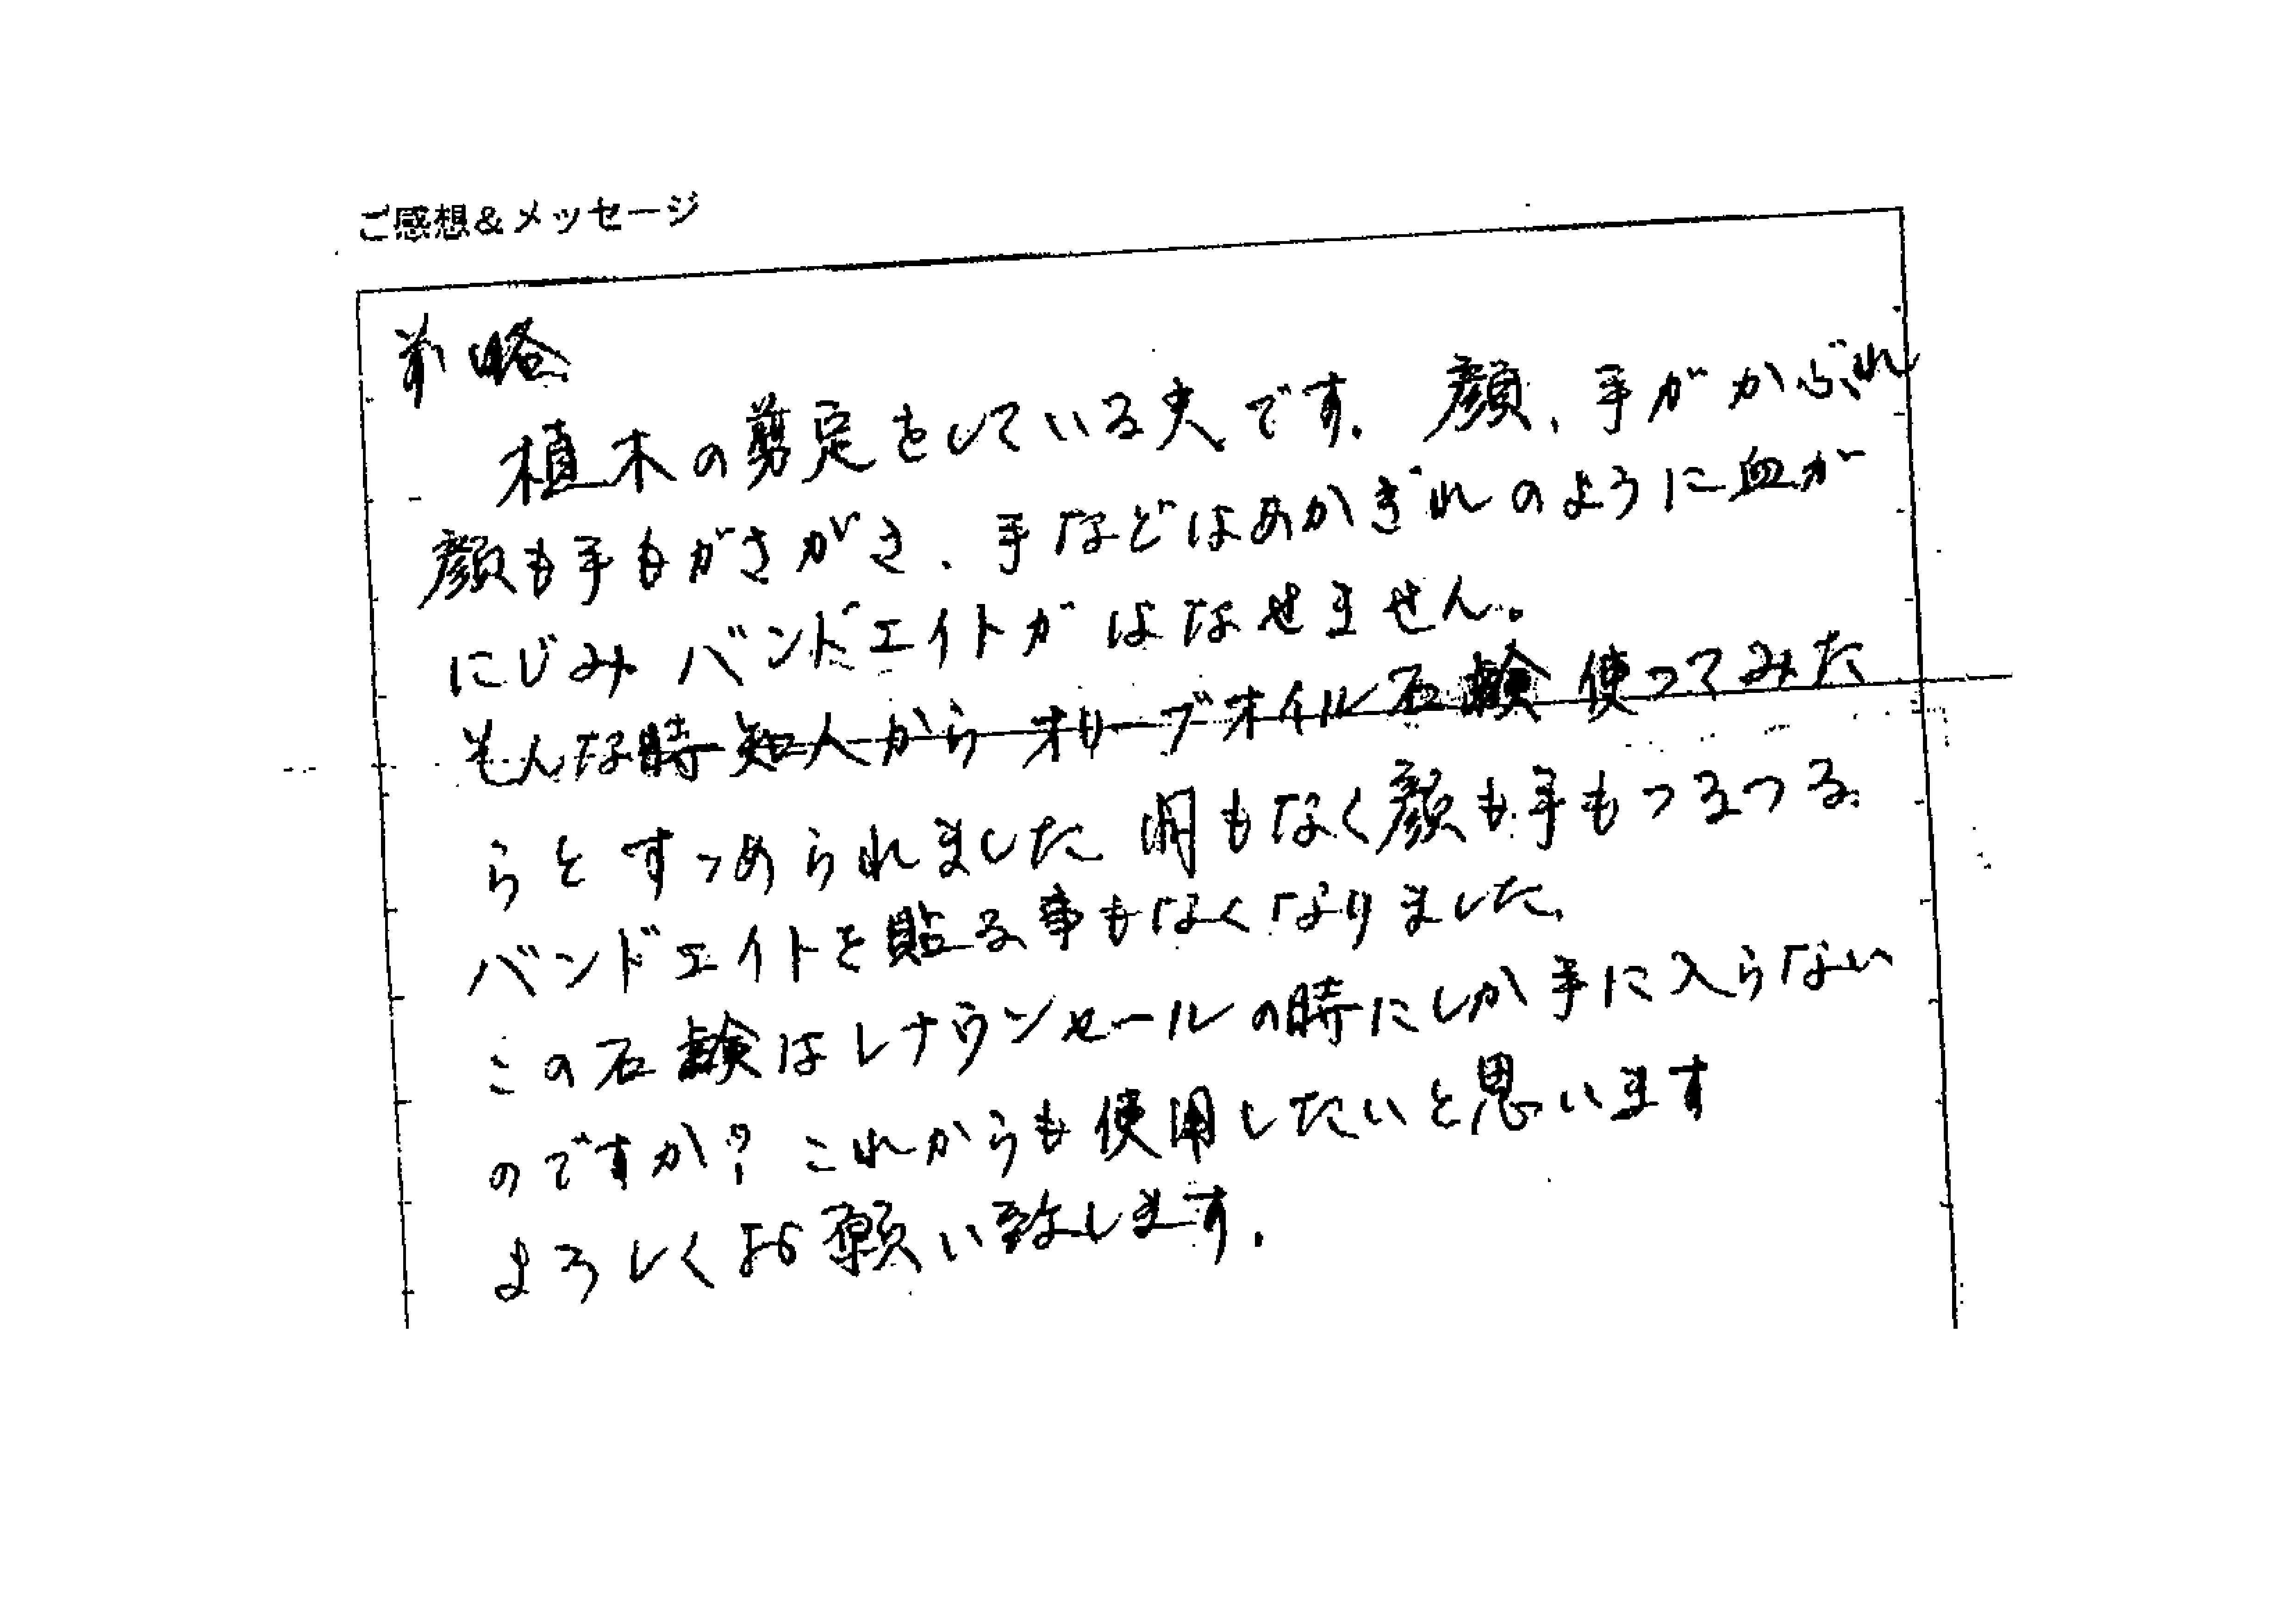 ご感想&メッセージ
前略
植木の剪定をしている夫です.顔、手がかぶれ
顔も手もがさがさ、手などはあかぎれのように血が
にじみ バンドエイトがはなせません。
そんな時知人からオリーブオイル石鹸使ってみた
らとすゝめられました 間もなく顔も手もつるつる.
バンドエイトを貼る事もなくなりました.
この石鹸はレナウンセールの時にしか手に入らない
のですか? これからも使用したいと思います
よろしくお願い致します.